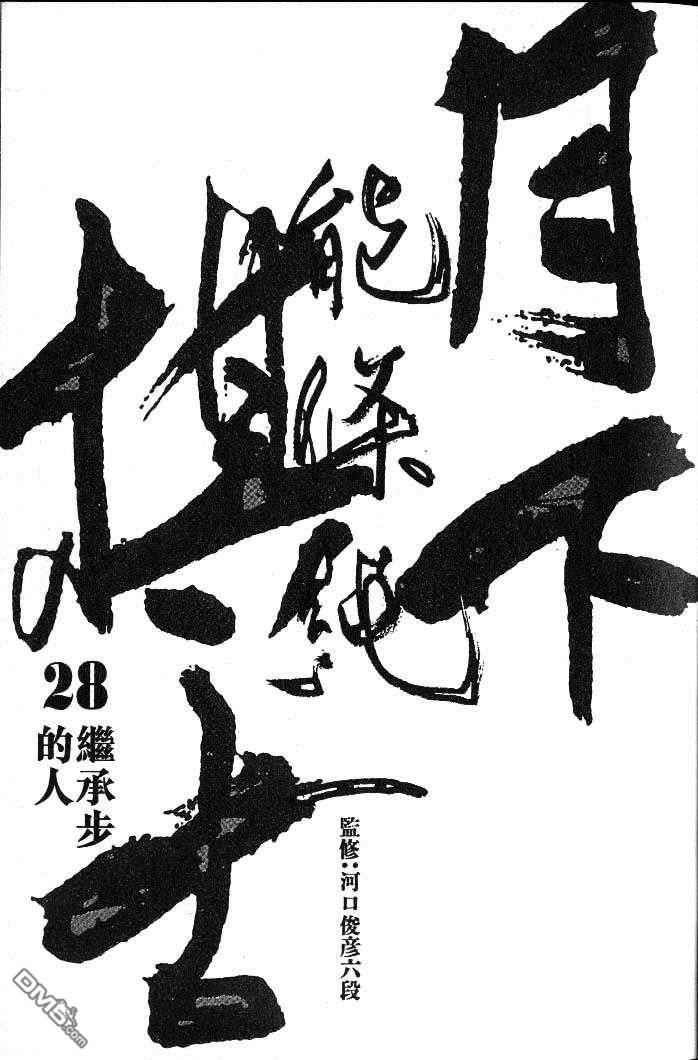 月下
棋士
能條純一
28
繼承步
的人
監修:河口俊彦六段
DM5.com